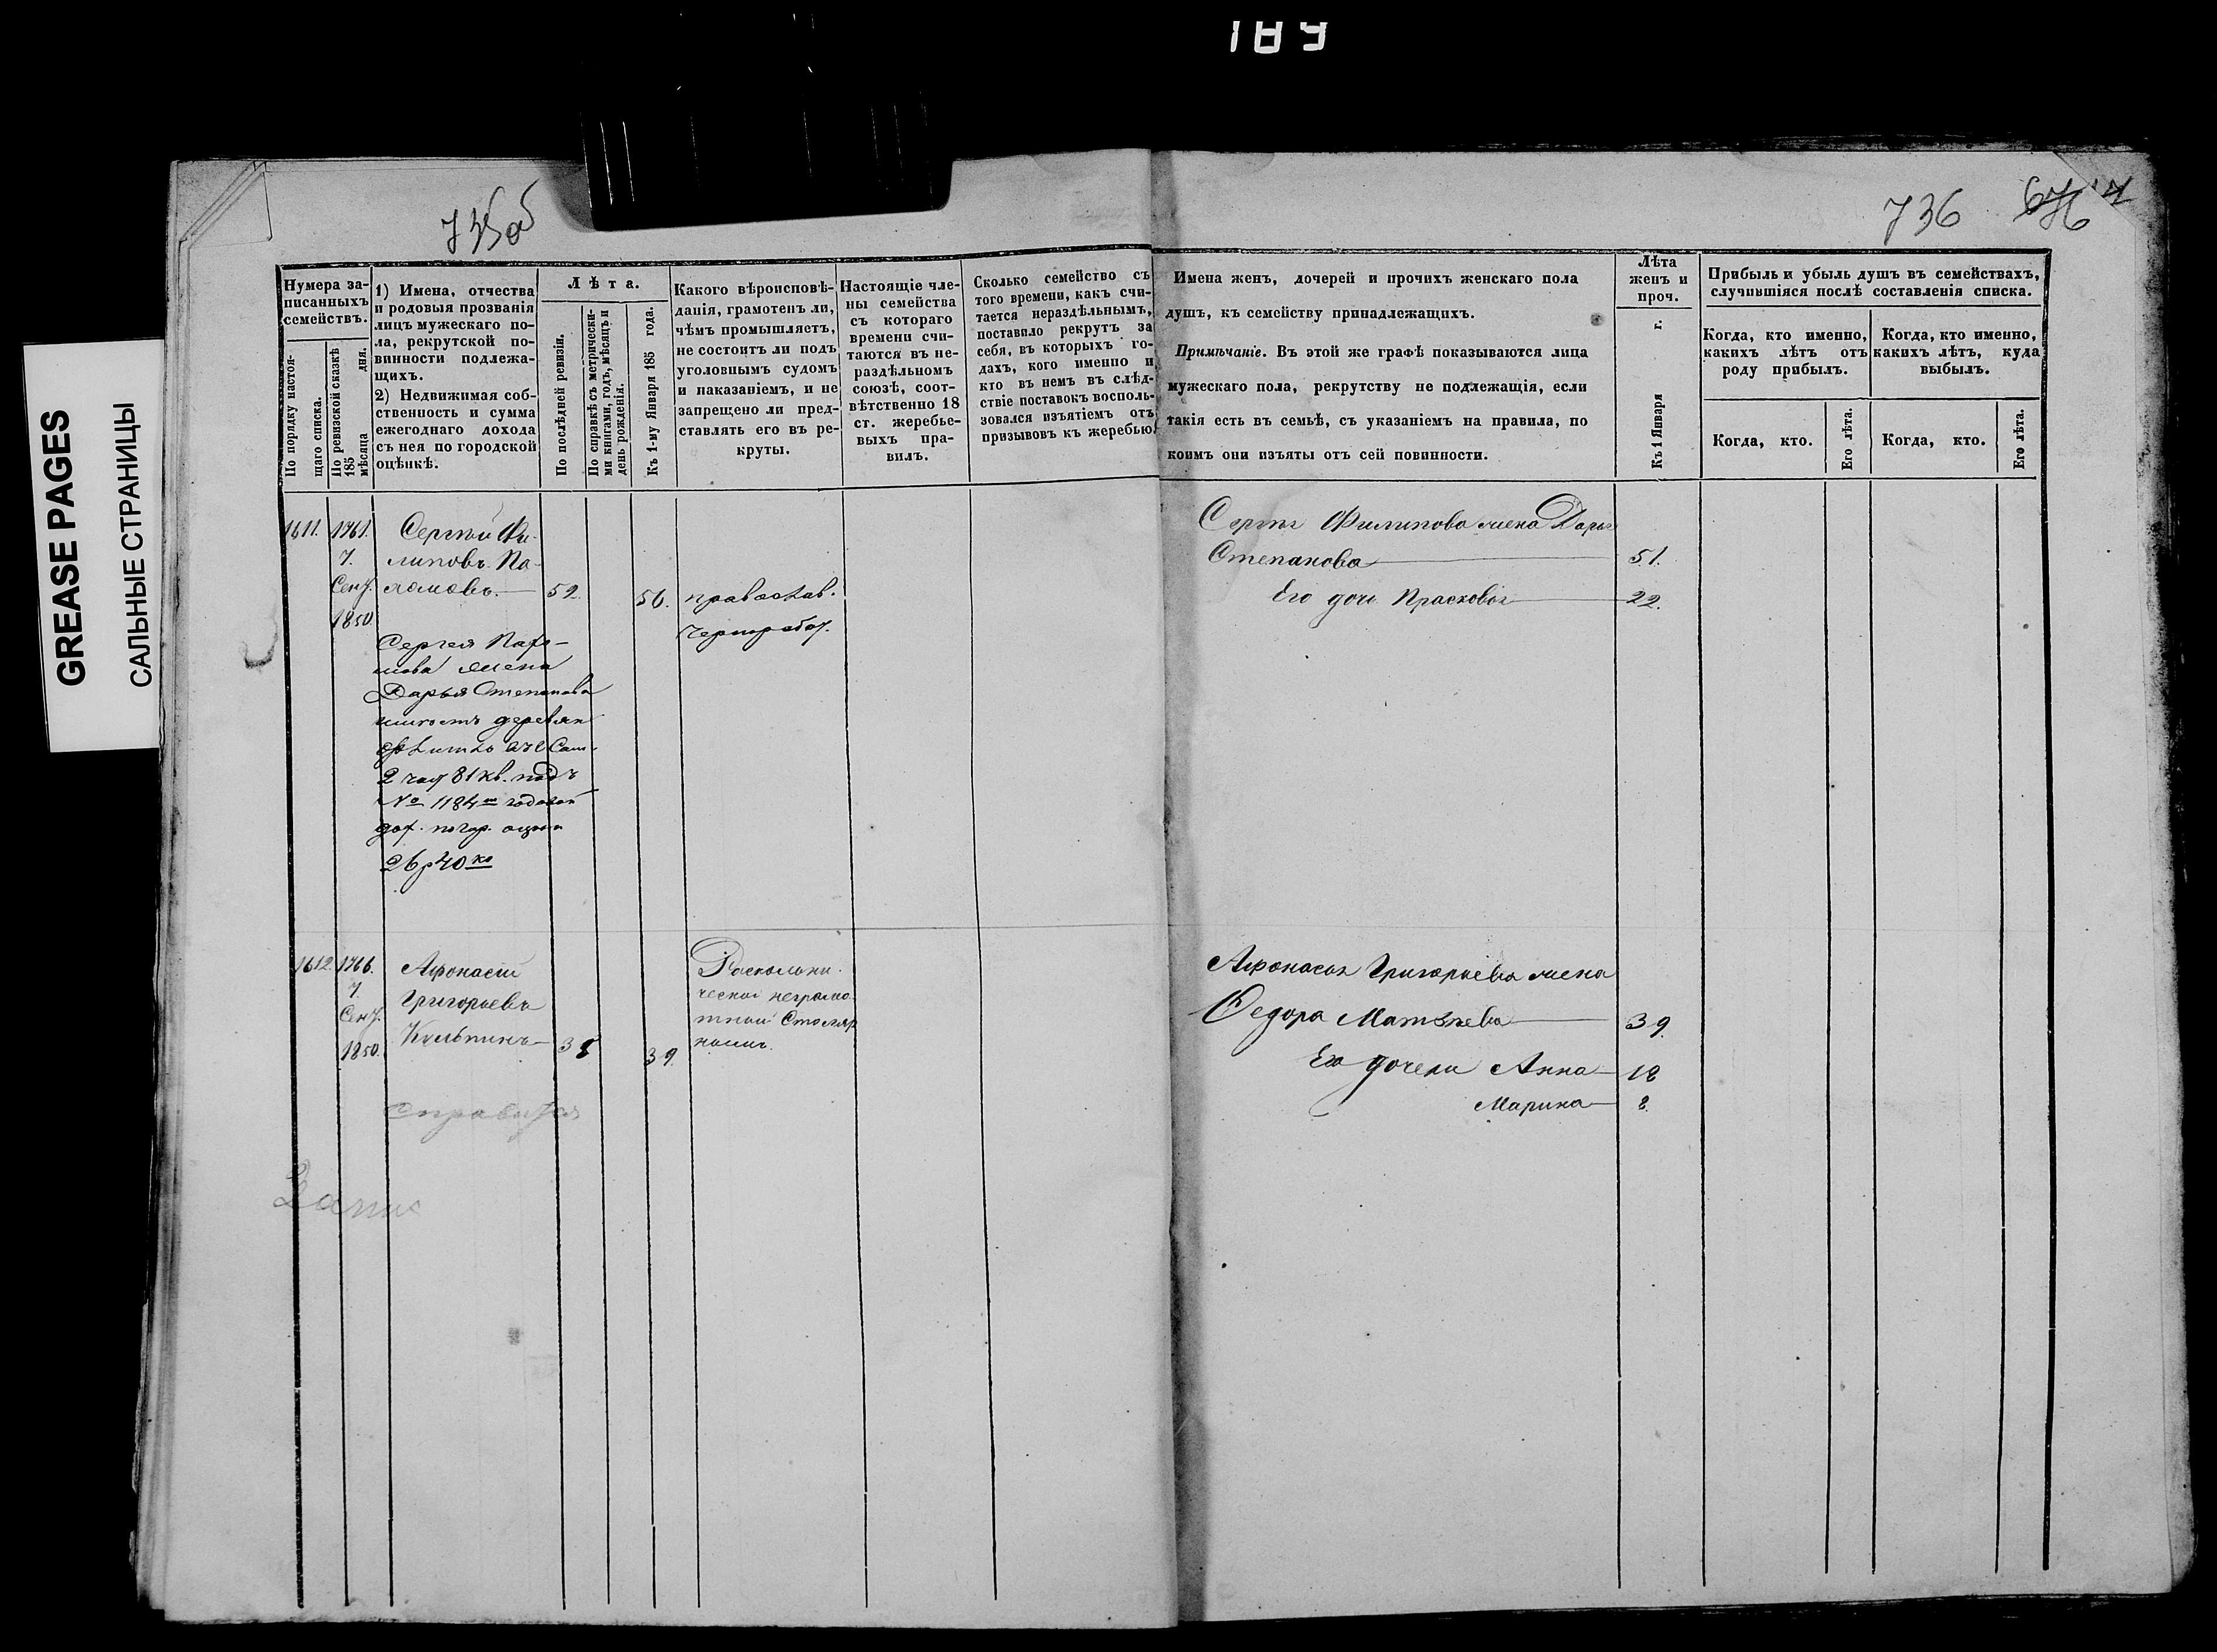 189
GREASE PAGES
САЛЬНЫЕ СТРАНИЦЫ
735об
736
Нумера за-
писанныхъ
семействъ.
По порядку настоя-
щаго списка.
По ревизской сказкѣ
185 дня.
мѣсяца
1) Имена, отчества
и родовыя прозванія
лицъ мужескаго по-
ла, рекрутской по-
винности подлежа-
щихъ.
2) Недвижимая соб-
ственность и сумма
ежегоднаго дохода
съ нея по городской
оцѣнкѣ.
Лѣта.
По послѣдней ревизіи.
По справкѣ съ метрически-
ми книгами, годъ, мѣсяцъ и
день рожденія.
Къ 1-му Января 185 года.
Какого вѣроисповѣ-
данія, грамотенъ ли,
чѣмъ промышляетъ,
не состоитъ ли подъ
уголовнымъ судомъ
и наказаніемъ, и не
запрещено ли пред-
ставлять его въ ре-
круты.
Настоящіе чле-
ны семейства
съ котораго
времени счи-
таются въ не-
раздѣльномъ
союзѣ, соот-
вѣтственно 18
ст. жеребье-
выхъ пра-
вилъ.
Сколько семейство съ
того времени, какъ счи-
тается нераздѣльнымъ,
поставило рекрутъ за
себя, въ которыхъ го-
дахъ, кого именно и
кто въ немъ въ слѣд-
ствіе поставокъ восполь-
зовался изъятіемъ отъ
призывовъ къ жеребью.
Имена женъ, дочерей и прочихъ женскаго пола
душъ, къ семейству принадлежащихъ.
Примѣчаніе. Въ этой же графѣ показываются лица
мужескаго пола, рекрутству не подлежащія, если
такія есть въ семьѣ, съ указаніемъ на правила, по
коимъ они изъяты отъ сей повинности.
Лѣта
женъ и
проч.
Къ 1 Января г.
Прибыль и убыль душъ въ семействахъ,
случившіяся послѣ составленія списка.
Когда, кто именно,
какихъ лѣтъ отъ
роду прибылъ.
Когда, кто именно,
какихъ лѣтъ, куда
выбылъ.
Когда, кто.
Его лѣта.
Когда, кто.
Его лѣта.
1611. 1761.
7.
Сент.
1850
Сергѣй Фи-
липовъ Па-
хомовъ. 52. 56.
православ.
чернорабоч.
Сергея Пахо-
мова жена
Дарья Степанова
2 час 81 кв. подъ
№ 1184м годовой
дох. по гор. оцѣнк
26 р 40 ко
Сергѣя Филипова жена Дарья
Степанова 51.
Его дочь Прасковья 22.
1612. 1766.
7.
Сент.
1850.
Афонасій
Григорьевъ
38 39.
Расколни-
ческой неграмо-
тный Столяр
Афонасья Григорьева жена
Федора Матвѣева 39.
Его дочери Анна 18
Марина 8.
справится